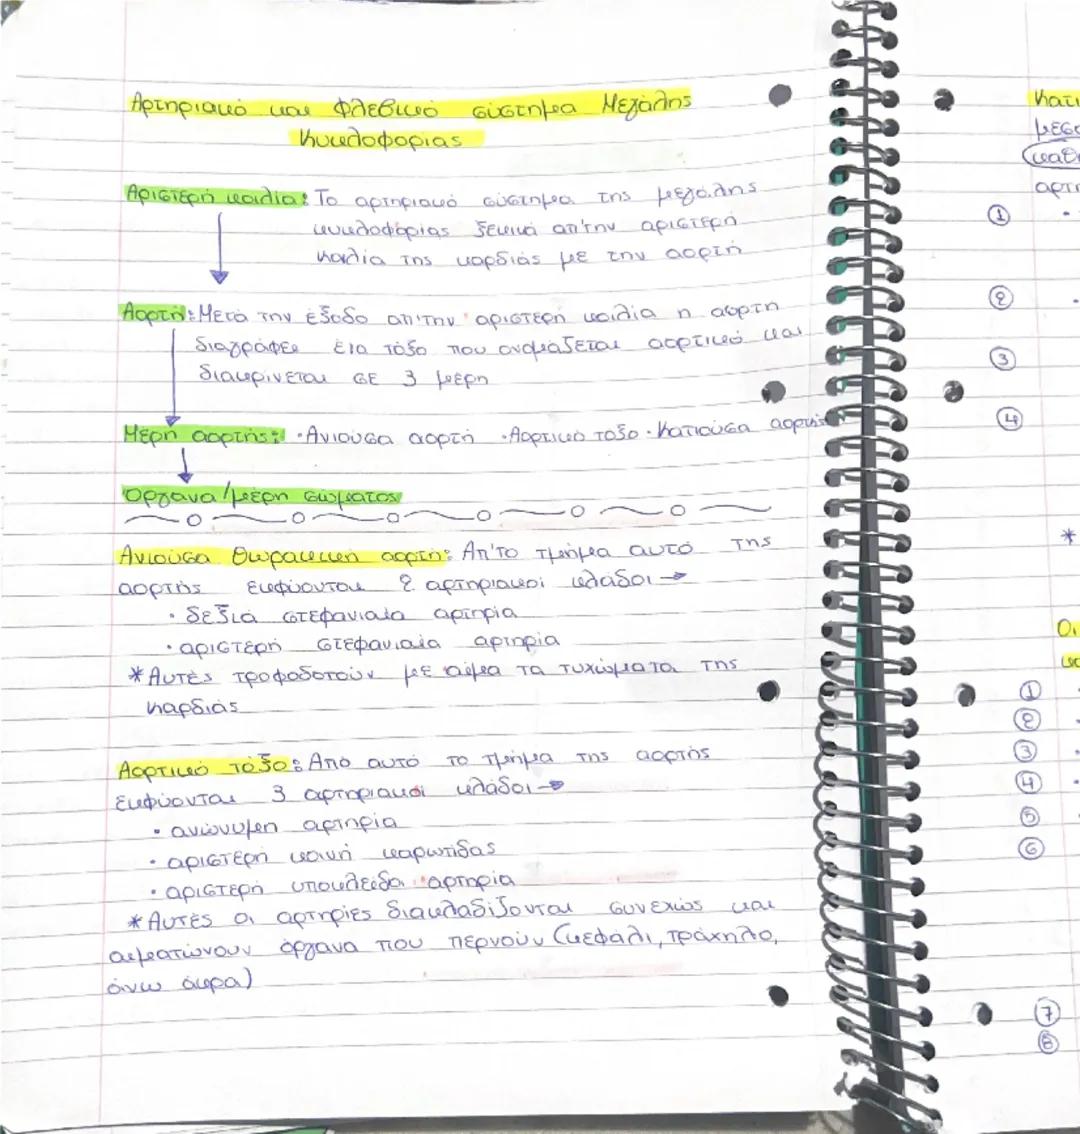 Αρτηριακό και Φλεβικό σύστημα Μεγάλης
Κυκλοφορίας
Αριστερή κοιλία: Το αρτηριακό σύστημα της μεγάλης
κυκλοφορίας ξεκινά απ'την αριστερή
κοιλία της καρδιάς με την αορτή
Αορτή: Μετά την έξοδο απ'την αριστερή κοιλία η αορτη
διαγράφει ένα τόξο που ονομάζεται αορτικό και
διακρίνεται σε 3 μέρη
Μέρη αορτής: · Ανιούσα αορτή · Αορτικό τόξο · Κατιούσα αορτή
Όργανα/μέρη σώματος
Ανιούσα θωρακική αορτή: Απ'το τμήμα αυτό της
αορτής εκφύονται 2 αρτηριακοί κλάδοι →
· δεξιά στεφανιαία αρτηρία
· αριστερή στεφανιαία αρτηρία
* Αυτές τροφοδοτούν με αίμα τα τυχώματα της
καρδιάς
Αορτικό τόξο: Από αυτό το τμήμα της αορτής
εκφύονται 3 αρτηριακοί κλάδοι →
· ανώνυμη αρτηρία
· αριστερή κοινή καρωτίδας
· αριστερή υποκλείδα αρτηρία
* Αυτές οι αρτηρίες διακλαδίζονται συνεχώς και
αιματώνουν όργανα που περνούν (κεφάλι, τράχηλο,
άνω άκρα)
①
②
③
④
*
Οι
①
②
③
④
⑤
⑥
⑦
⑧